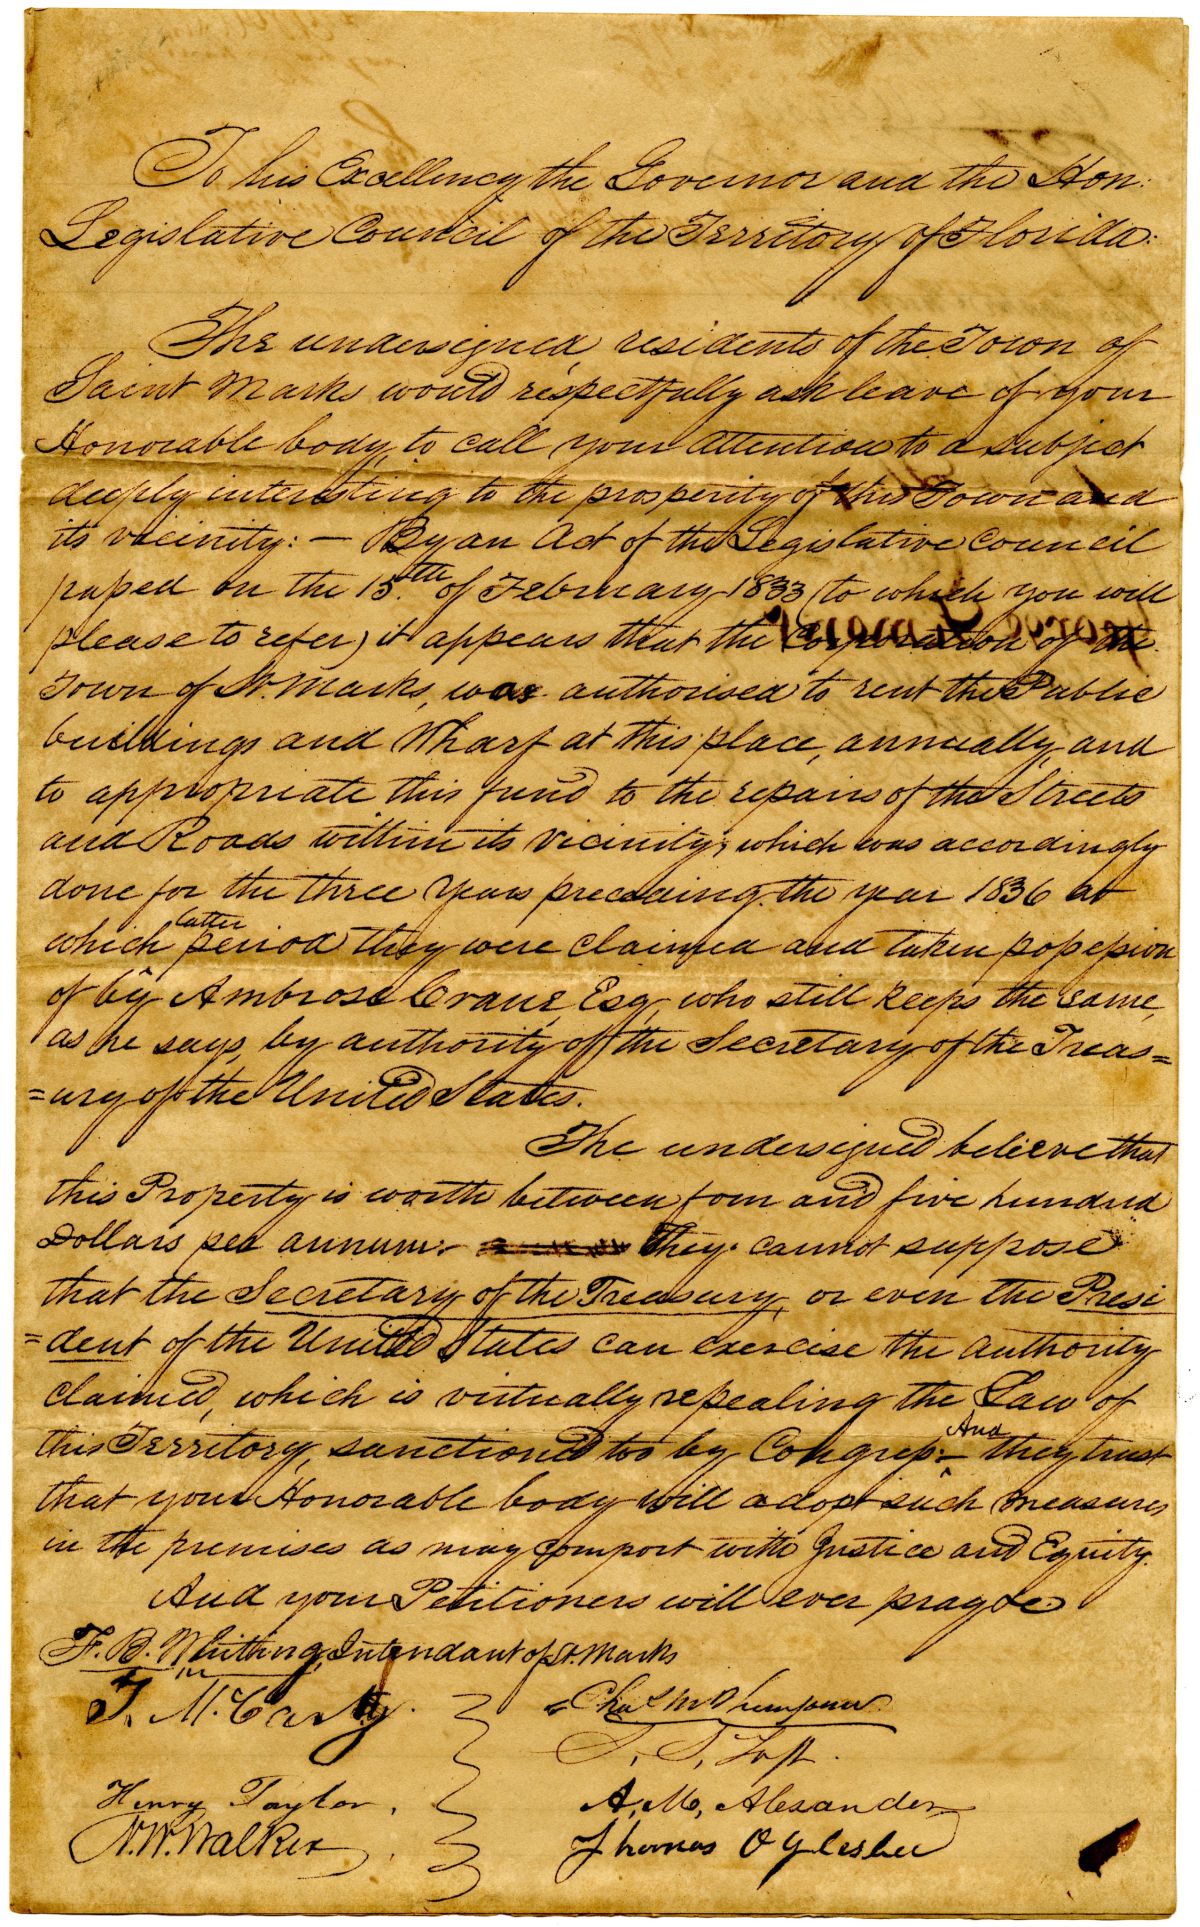 To his Excellency the Governor and the Hon:
Legislative Council of the Territory of Florida:
The undersigned, residents of the Town of
Saint Marks would respectfully ask leave of your
Honorable body, to call your attention to a subject
deeply interesting to the prosperity of this Town and
its vicinity: — By an Act of the Legislative Council
passed on the 15th of February 1833 (to which you will
please to refer) it appears that the Corporation of the
Town of St. Marks, was authorised to rent the Public
buildings and Wharf at this place, annually, and
to appropriate this fund to the repairs of the Streets
and Roads within its vicinity; which was accordingly
done for the three Years preceding the year 1836 at
which latter period they were claimed and taken possession
of by Ambrose Crane, Esq, who still keeps the same,
as he says, by authority of the Secretary of the Treas=
=ury of the United States.
The undersigned believe that
this Property is worth between four and five hundred
Dollars per annum:- They cannot suppose
that the Secretary of the Treasury, or even the Presi
=dent of the United States can exercise the authority
claimed, which is virtually repealing the Law of
this Territory, sanctioned too by Congress:- And they trust
that your Honorable body will adopt such measures
in the premises as may comport with Justice and Equity.
And your Petitioners will ever pray &c
F. B. Whiting, Intendant of St. Marks
T. McCarty.
Chas
T. T.
Henry Taylor.
A. M. Alexander
N. W. Walker
Thomas Oglesbee